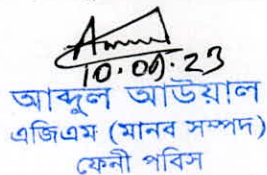 10.09.23
আব্দুল আউয়াল
এজিএম (মানব সম্পদ)
ফেনী পবিস